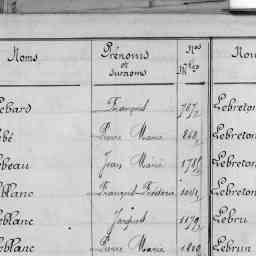 Noms Prénoms et surnoms Nos Mles Nom
Lebard François 797 Lebreton
bé Pierre Marie 860 Lebreton
beau Jean Marie Lebreton
blanc François Lebreton
eblanc Jacques 1179 Lebru
eblanc Pierre Marie Lebrun